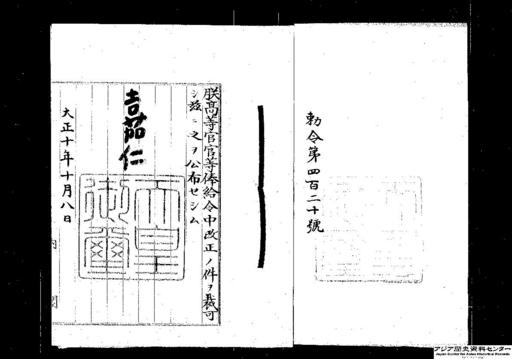 勅令第四百二十號
朕高等官官等俸給令中改正ノ件ヲ裁可
シ茲ニ之ヲ公布セシム
嘉仁
天皇
御璽
大正十年十月八日
内閣
アジア歴史資料センター
Japan Center for Asian Historical Records